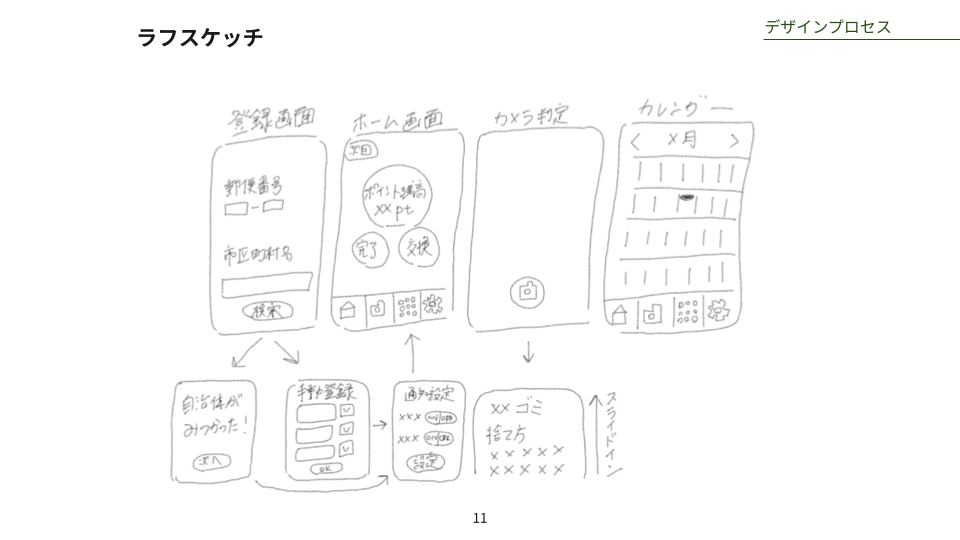 ラフスケッチ
デザインプロセス
登録画面
郵便番号
市区町村名
検索
ホーム画面
次回
ポイント残高
xx pt
完了
交換
カメラ判定
カレンダー
< x月 >
自治体が
みつかった!
次へ
手動登録
OK
通知設定
xxx ON/OFF
xxx ON/OFF
設定
xx ゴミ
捨て方
x x x x x
x x x x x
スライドイン
11